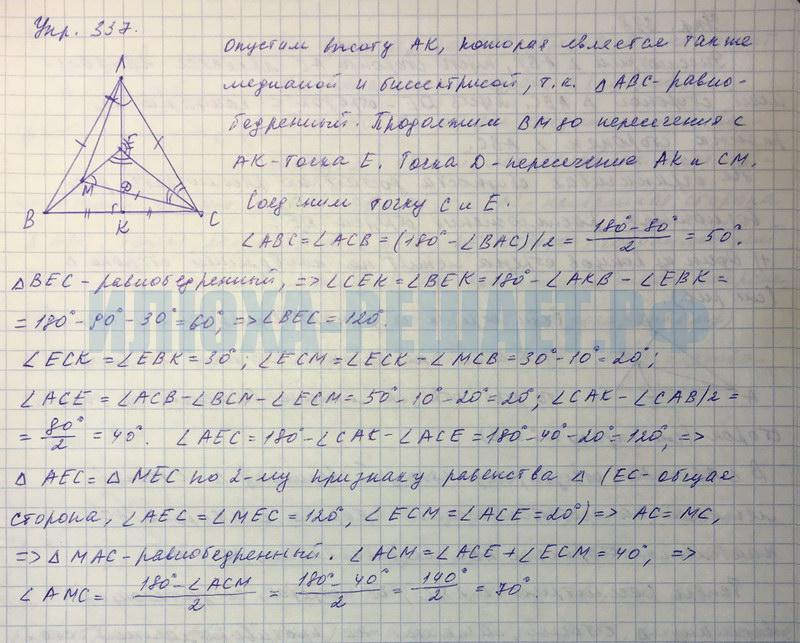 Упр. 337.
A
E
M
D
B
K
C
опустим высоту АК, которая является также
медианой и биссектрисой, т.к. △ABC-равно-
бедренный. Продолжим BM до пересечения с
AK-точка E. Точка D-пересечение AK и CM.
Соединим точку C и E.
∠ABC=∠ACB=(180°-∠BAC)/2 = (180°-80°)/2 = 50°.
△BEC-равнобедренный, => ∠CEK=∠BEK=180°-∠AKB-∠EBK=
=180°-90°-30°=60°, => ∠BEC=120°.
∠ECK=∠EBK=30°; ∠ECM=∠ECK-∠MCB=30°-10°=20°;
∠ACE=∠ACB-∠BCM-∠ECM=50°-10°-20°=20°; ∠CAK-∠CAB/2=
= 80°/2 = 40°. ∠AEC=180°-∠CAK-∠ACE=180°-40°-20°=120°, =>
△AEC=△MEC по 2-му признаку равенства △ (EC-общая
сторона, ∠AEC=∠MEC=120°, ∠ECM=∠ACE=20°) => AC=MC,
=> △MAC-равнобедренный. ∠ACM=∠ACE+∠ECM=40°, =>
∠AMC= (180°-∠ACM)/2 = (180°-40°)/2 = 140°/2 = 70°.
ИЛЮХА-РЕШАЕТ.РФ